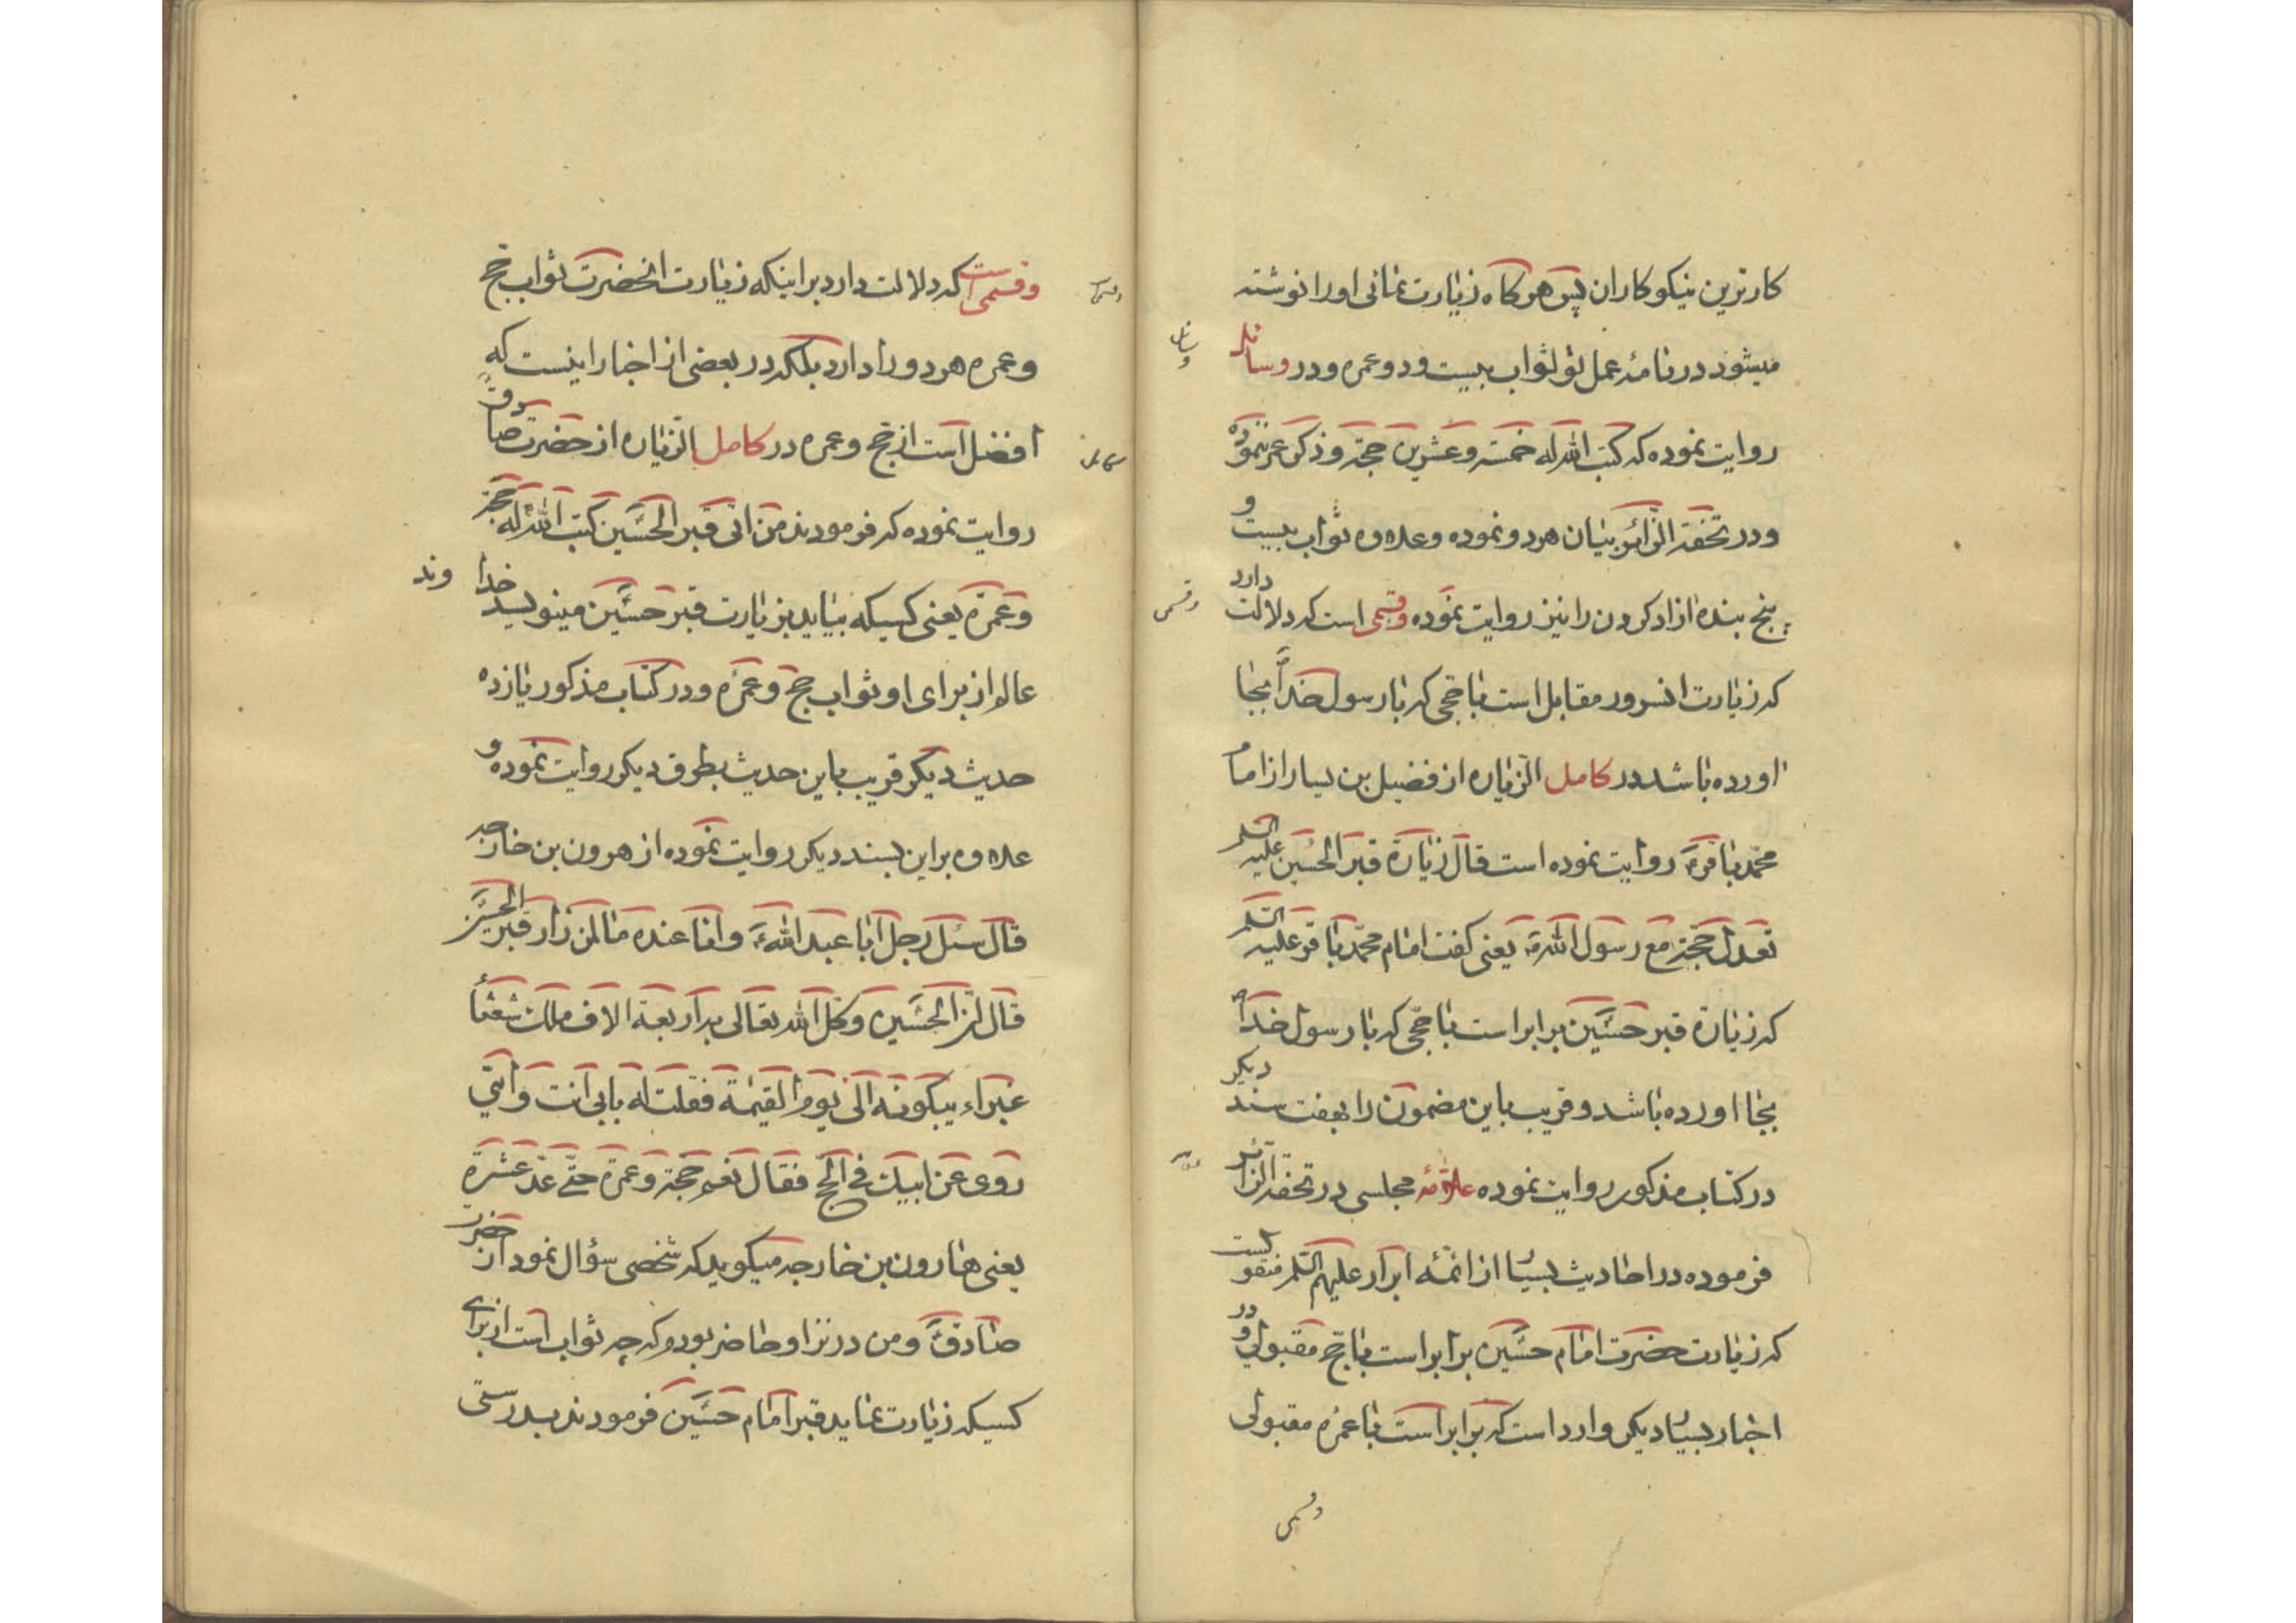 کارترین نیکوکاران پس هر کاه زیارت نمائی او را نوشته
میشود در نامهٔ عمل تو ثواب بیست و دو عمره و در وسائل
روایت نموده که کتب الله له خمسة و عشرین حجة و ذکر عمره ننموده
و در تحفة الزائر بیان هر دو نموده و علاوه ثواب بیست و
پنج بنده ازاد کردن را نیز روایت نموده وقسمی است که دلالت دارد
که زیارت انسرور مقابل است با حجی که با رسول خدا بجا
اورده باشد در کامل الزیاره از فضیل بن یسار از امام
محمد باقرؑ روایت نموده است قال زیارة قبر الحسین علیه السلم
تعدل حجة مع رسول اللهؐ یعنی کفت امام محمد باقر علیه السلم
که زیارة قبر حسینؑ برابر است با حجی که با رسول خداؐ
بجا اورده باشد و قریب باین مضمون را بهفت سند دیکر
در کتاب مذکور روایت نموده علامهٔ مجلسی در تحفة الزائر
فرموده در احادیث بسیار از ائمه ابرار علیهم السلم منقولست
که زیارت حضرت امام حسینؑ برابر است با حج مقبولی و در
اخبار بسیار دیکر وارد است که برابر است با عمره مقبولی
وقسمی
وقسمی است که دلالت دارد بر اینکه زیارت انحضرت ثواب حج
و عمره هر دو را دارد بلکه در بعضی از اخبار اینست که
افضل است از حج و عمره در کامل الزیاره از حضرت صادقؑ
روایت نموده که فرمودند من اتی قبر الحسین کتب الله له حجة
و عمرة یعنی کسیکه بیاید بزیارت قبر حسینؑ مینویسد خدا وند
عالم از برای او ثواب حج و عمره و در کتاب مذکور یازده
حدیث دیکر قریب باین حدیث بطرق دیکر روایت نموده و
علاوه بر این بسند دیکر روایت نموده از هرون بن خارجه
قال سئل رجل ابا عبد اللهؑ و انا عنده ما لمن زار قبر الحسینؑ
قال ان الحسینؑ وکل الله تعالی به اربعة الاف ملک شعثا
غبراء یبکونه الی یوم القیمة فقلت له بابی انت و امی
روی عن ابیک فی الحج فقال نعم حجة و عمرة حتی عد عشرة
یعنی هارون بن خارجه میکوید که شخصی سؤال نمود از حضرت
صادقؑ و من در نزد او حاضر بودم که چه ثواب است از برای
کسیکه زیارت نماید قبر امام حسینؑ فرمودند بدرستی